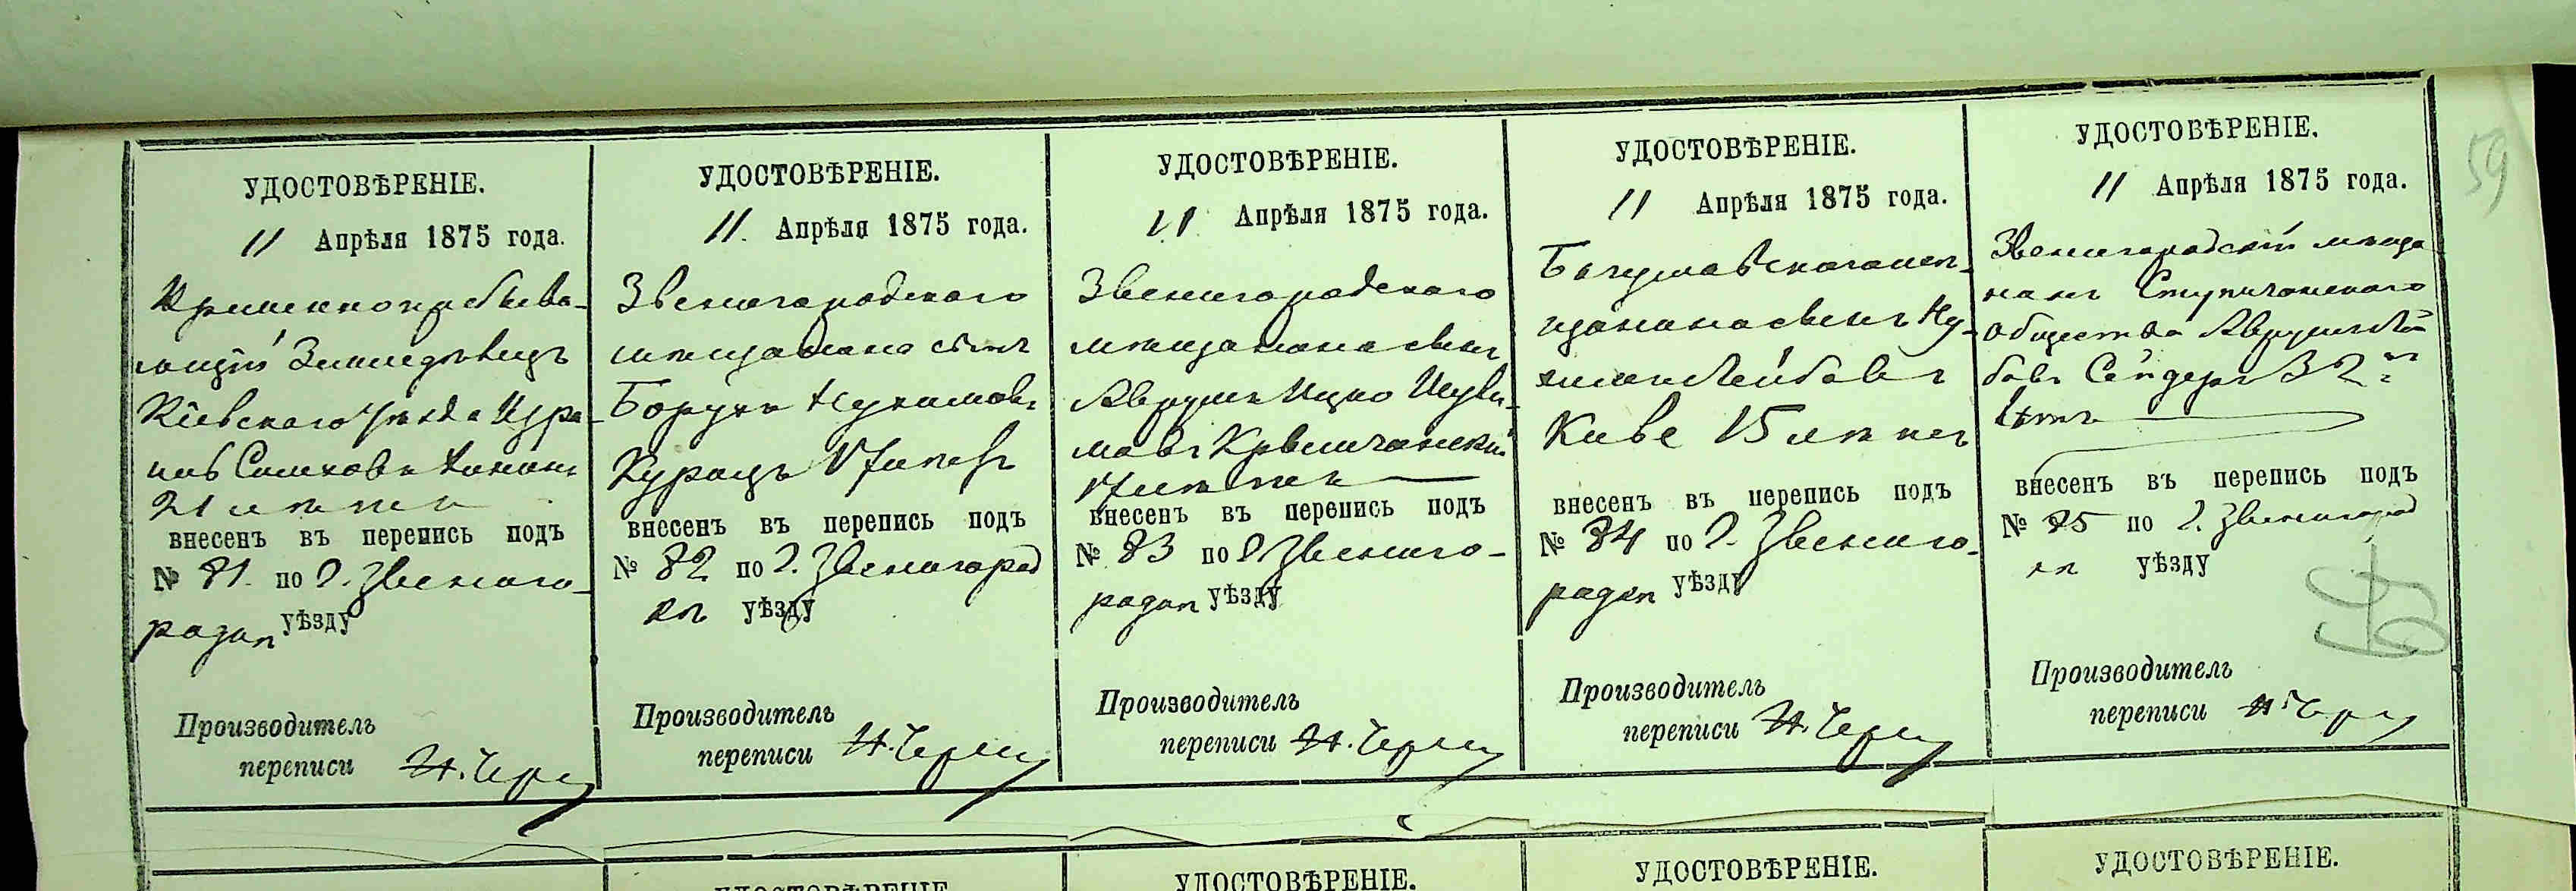 59
УДОСТОВѢРЕНІЕ.
11 Апрѣля 1875 года.
Временнопребыва-
ющій Земледѣлецъ
Кіевскаго уѣзда Изра-
2
внесенъ въ перепись подъ
№ 81. по г. Звениго-
родкѣ уѣзду
Производитель
переписи
УДОСТОВѢРЕНІЕ.
11. Апрѣля 1875 года.
Звенигородскаго
мѣщанина сынъ
Борухъ Нухимовъ
Курацъ
внесенъ въ перепись подъ
№ 82 по г. Звенигород
кѣ уѣзду
Производитель
переписи
УДОСТОВѢРЕНІЕ.
11 Апрѣля 1875 года.
Звенигородскаго
мѣщанина сынъ
Аврумъ Ицко
внесенъ въ перепись подъ
№ 83 по г. Звениго-
родкѣ уѣзду
Производитель
переписи
УДОСТОВѢРЕНІЕ.
11 Апрѣля 1875 года.
Богуславскаго мѣ-
щанина сынъ Ну-
химъ Лейбовъ
Киве 15 лѣтъ
внесенъ въ перепись подъ
№ 84 по г. Звениго-
родкѣ уѣзду
Производитель
переписи
УДОСТОВѢРЕНІЕ.
11 Апрѣля 1875 года.
Звенигородскій мѣща
нинъ
общества Аврумъ Лей
бовъ Сандеръ 32
лѣтъ
внесенъ въ перепись подъ
№ 85 по г. Звенигород
кѣ уѣзду
Производитель
переписи
УДОСТОВѢРЕНІЕ.
УДОСТОВѢРЕНІЕ.
УДОСТОВѢРЕНІЕ.
УДОСТОВѢРЕНІЕ.